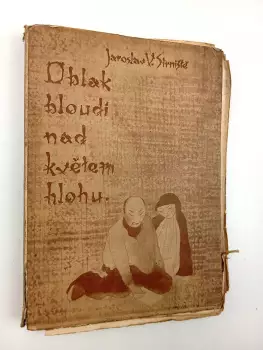 Jaroslav V. Strniště
Oblak
bloudí
nad
květem
hlohu.